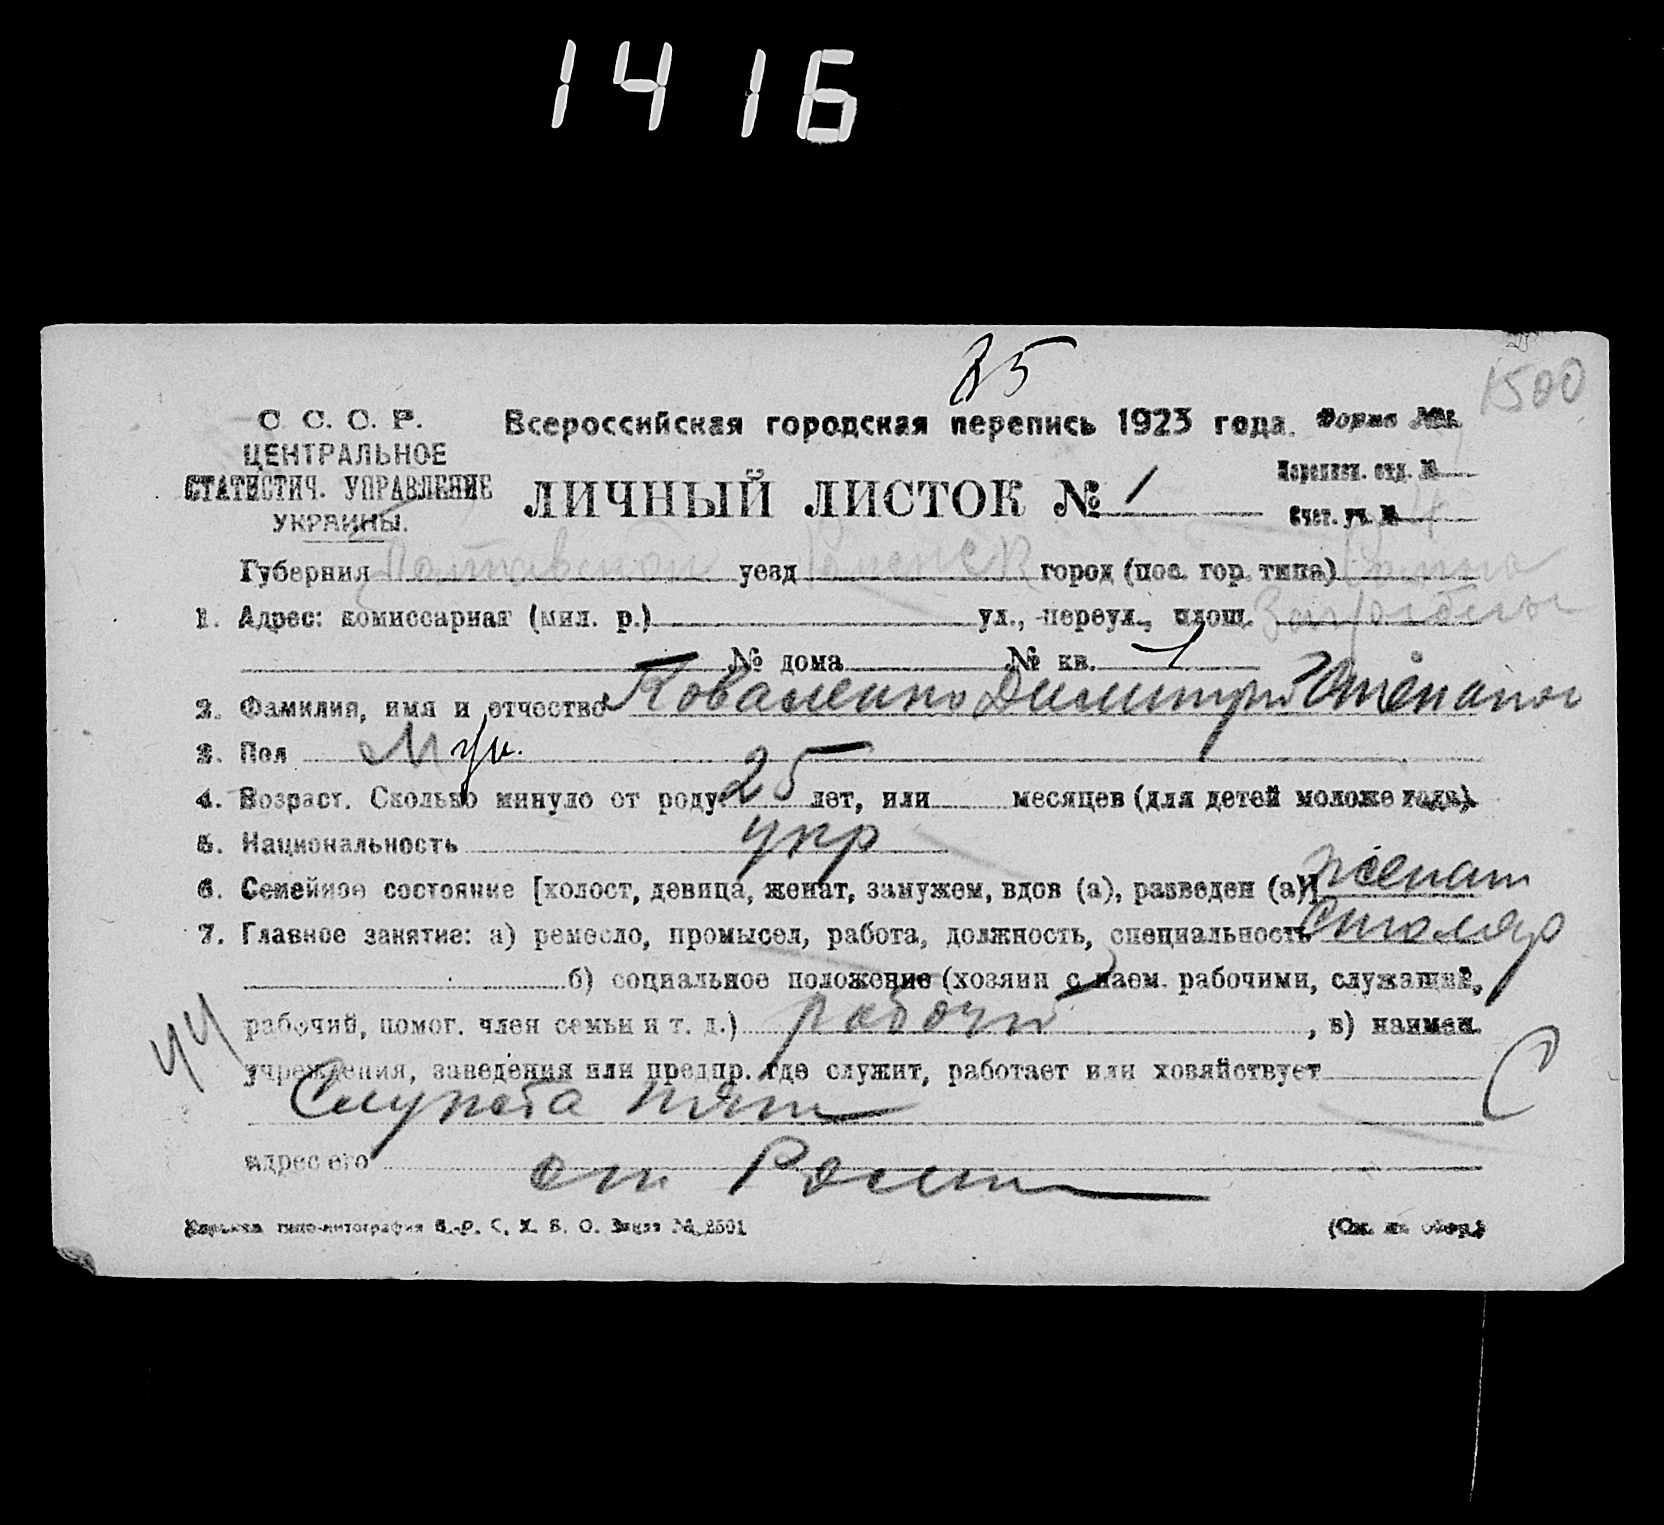 1416
85
1500
С. С. С. Р.
ЦЕНТРАЛЬНОЕ
СТАТИСТИЧ. УПРАВЛЕНИЕ
УКРАИНЫ.
Всероссийская городская перепись 1923 года. Форма №1.
ЛИЧНЫЙ ЛИСТОК № 1
Переписн. отд. №
Счет. уч. № 4
Губерния Полтавская уезд Роменск город (пос. гор. типа) Ромны
1. Адрес: комиссарная (мил. р.) ул., переул., площ.
№ дома № кв. 1
2. Фамилия, имя и отчество Коваленко Димитрий Степанов
3. Пол Муж.
4. Возраст. Сколько минуло от роду 25 лет, или месяцев (для детей моложе года).
5. Национальность укр
6. Семейное состояние [холост, девица, женат, замужем, вдов (а), разведен (а)] женат
7. Главное занятие: а) ремесло, промысел, работа, должность, специальность Столяр
б) социальное положение (хозяин с наем. рабочими, служащий,
рабочий, помог. член семьи и т. д.) рабочий, в) наимен.
44
учреждения, заведения или предпр. где служит, работает или хозяйствует
Служба тяги
адрес его ст. Ромны
Харьков. типо-литография В.-У. С. Х. В. О. Заказ № 2501
(См. на обор.)